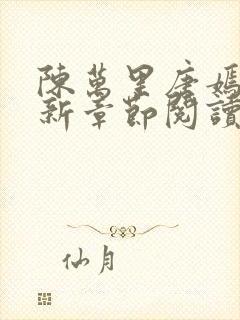 陳萬里唐嫣
新章節閱讀
仙月